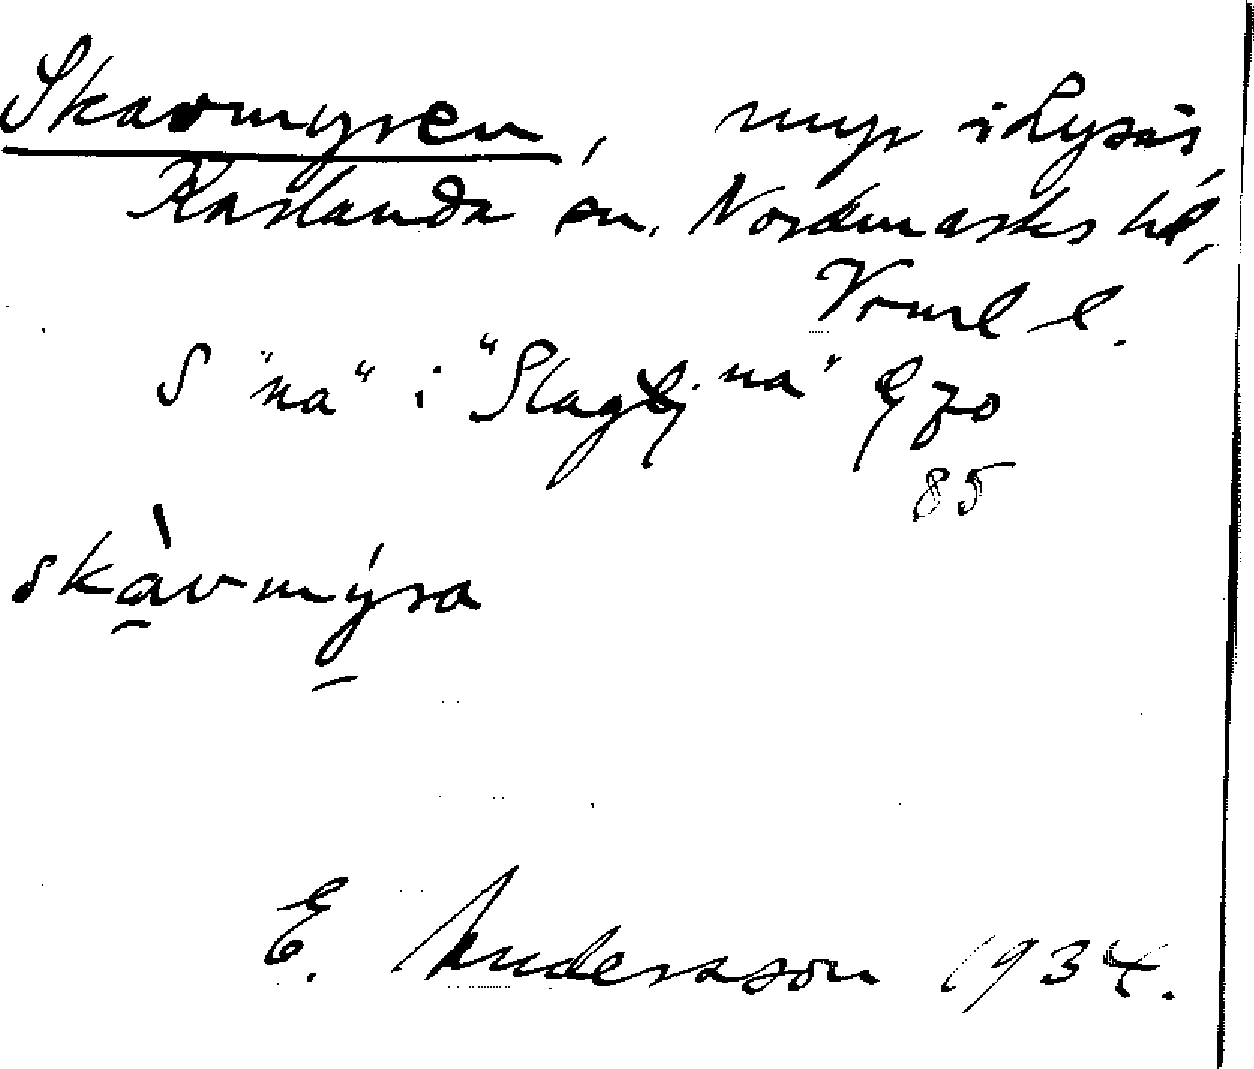 Skavmyren, myr i Lysås,
Karlanda sn, Nordmarks hd,
Vrml l.
S "na" i "Slagtj.na" Q70
85
skàvmýra
E. Andersson 1934.